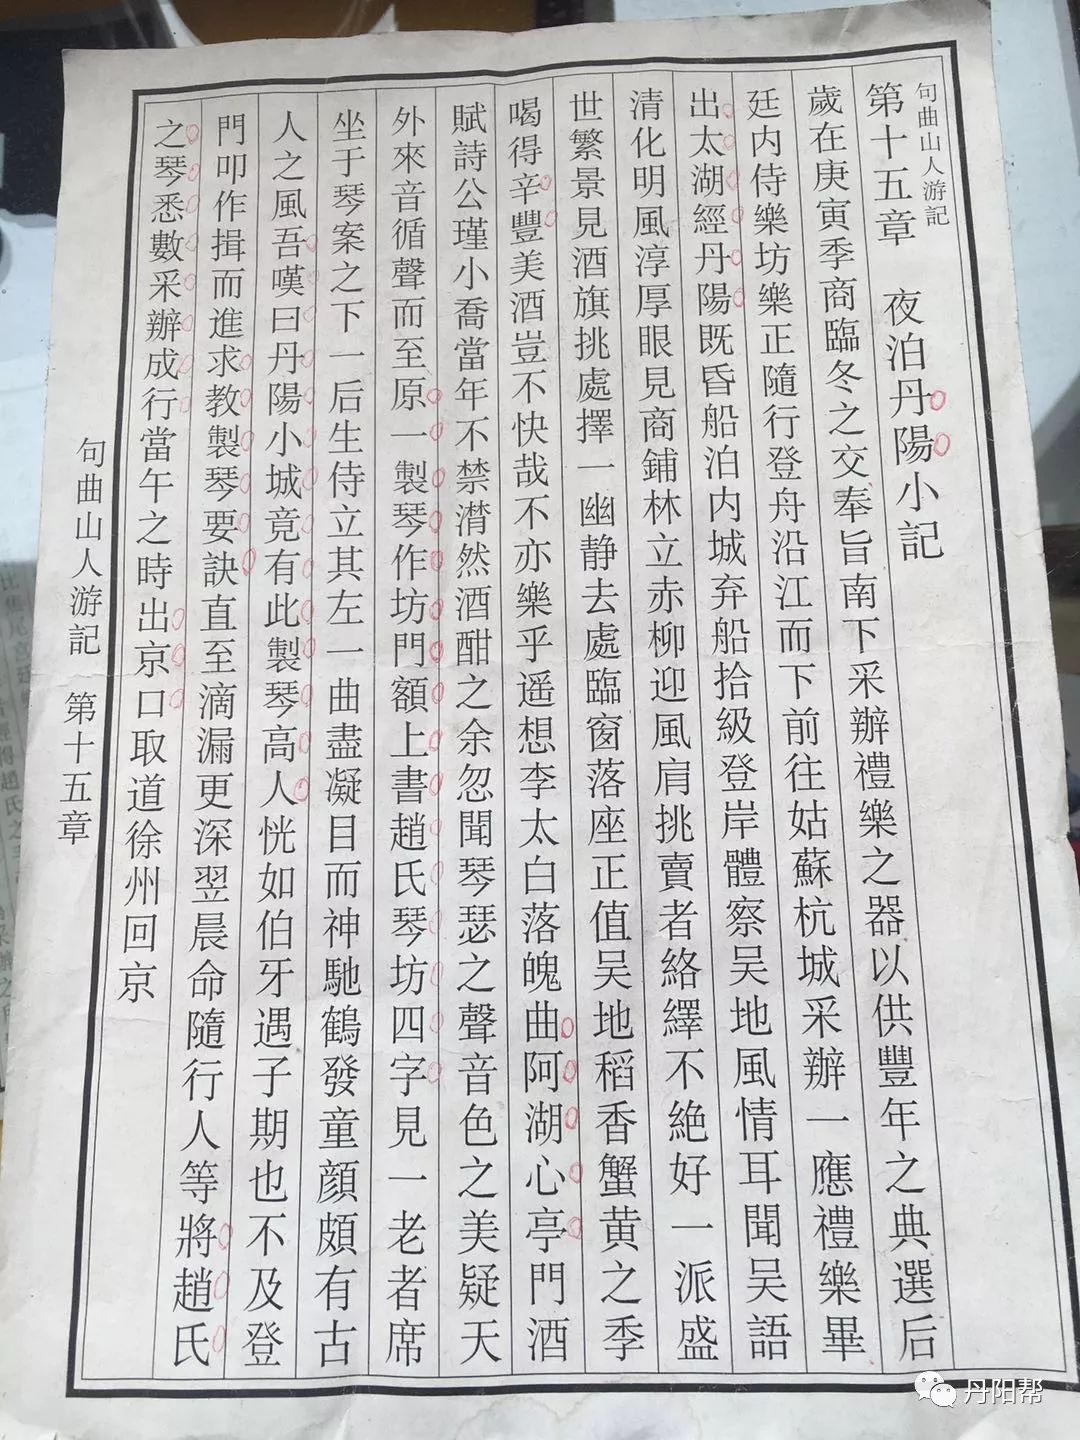 句曲山人游記
第十五章 夜泊丹陽小記
歲在庚寅季商臨冬之交奉旨南下采辦禮樂之器以供豐年之典選后
廷内侍樂坊樂正隨行登舟沿江而下前往姑蘇杭城采辦一應禮樂畢
出太湖經丹陽既昏船泊内城弃船拾級登岸體察吴地風情耳聞吴語
清化明風淳厚眼見商鋪林立赤柳迎風肩挑賣者絡繹不絶好一派盛
世繁景見酒旗挑處擇一幽静去處臨窗落座正值吴地稻香蟹黄之季
喝得辛豐美酒豈不快哉不亦樂乎遥想李太白落魄曲阿湖心亭門酒
賦詩公瑾小喬當年不禁潸然酒酣之余忽聞琴瑟之聲音色之美疑天
外來音循聲而至原一製琴作坊門額上書趙氏琴坊四字見一老者席
坐于琴案之下一后生侍立其左一曲盡凝目而神馳鶴發童顔頗有古
人之風吾嘆曰丹陽小城竟有此製琴高人恍如伯牙遇子期也不及登
門叩作揖而進求教製琴要訣直至滴漏更深翌晨命隨行人等將趙氏
之琴悉數采辦成行當午之時出京口取道徐州回京
句曲山人游記 第十五章
丹阳帮